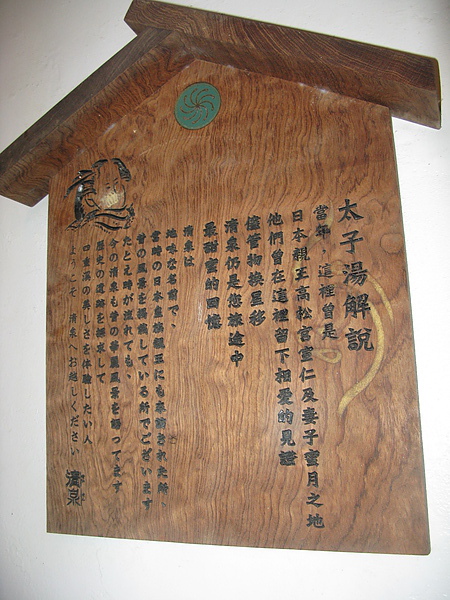 太子湯解說
當年，這裡曾是
日本親王高松宮宣仁及妻子蜜月之地
他們曾在這裡留下相愛的見證
儘管物換星移
清泉仍是您旅途中
最甜蜜的回憶
清泉は
地味な名前で、
當時の日本皇族親王にも奉納された所、
昔の風景を掲載している所でございます
たとえ時が流れても、
今の清泉も昔の華麗風景を語ってます
歴史の遺跡を探求して
の美しさを体験したい人
ようこそ 清泉へお越しください
清泉